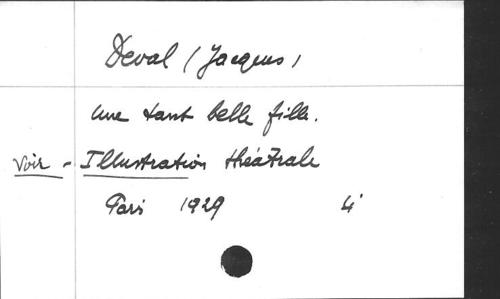 Deval (Jacques)
Une tant belle fille.
Voir - Illustration théâtrale
Paris 1929 4°